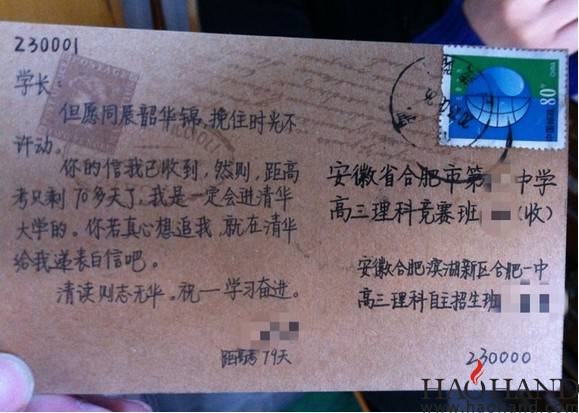 230001
学长:
但愿同展韶华锦,挽住时光不
许动。
你的信我已收到,然则,距高
考只剩70多天了,我是一定会进清华
大学的。你若真心想追我,就在清华
给我递表白信吧。
清读则志无华。祝一学习奋进。
距高考79天
80分
中国邮政
CHINA
安徽省合肥市第 中学
高三理科竞赛班 (收)
安徽合肥滨湖新区合肥一中
高三理科自主招生班
230000
HAOHAND
www.haohand.com